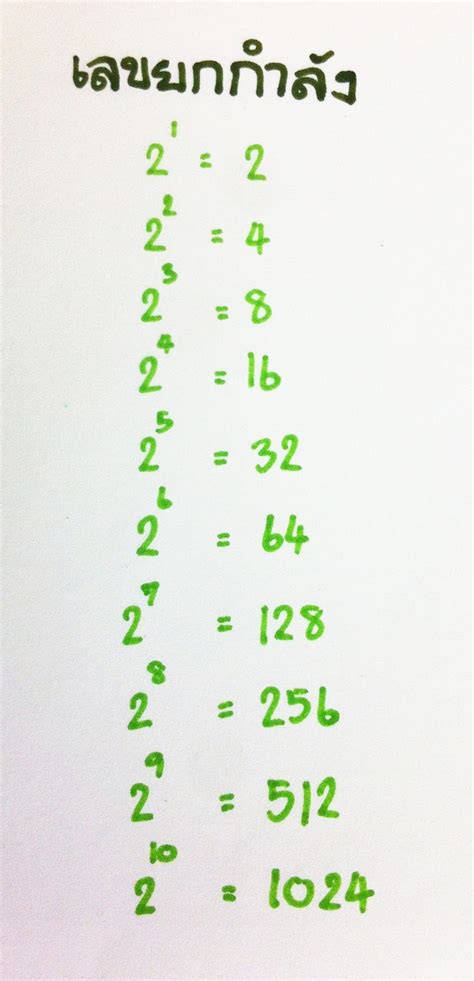 เลขยกกำลัง
2¹ = 2
2² = 4
2³ = 8
2⁴ = 16
2⁵ = 32
2⁶ = 64
2⁷ = 128
2⁸ = 256
2⁹ = 512
2¹⁰ = 1024